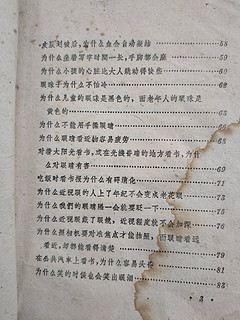 皮肤划破后，为什么血会自动凝结 58
为什么坐着写字时间一长，手脚都会麻 60
为什么小孩的心脏比大人跳动得快些 62
眼珠子为什么不怕冷 64
为什么儿童的眼珠是黑色的，而老年人的眼珠是
黄色的 65
为什么不能用手揉眼睛 67
为什么眼睛看近物容易疲劳 68
对着太阳光看书，或在光线昏暗的地方看书，为什
么对眼睛有害 71
吃饭时看书报为什么有碍消化 72
为什么近视眼的人上了年纪不会变成老花眼 73
为什么我们的眼睛隔一会就要眨一下 74
为什么近视眼戴了眼镜，近视程度就不会加深 76
为什么照相机要对准焦点才能拍照，而眼睛看远
看近，却都能看得清楚 79
在公共汽车上看书，为什么容易头
为什么笑的时候也会笑出眼泪 83
3